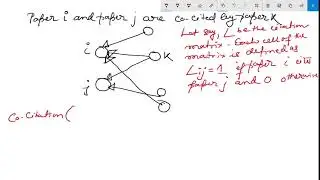 Paper i and paper j are co-cited by paper k
i
k
j
Let say, L be the citation
matrix. Each cell of the
matrix is defined as
Lij = 1 if paper i cites
paper j and 0 otherwise
Co-citation(